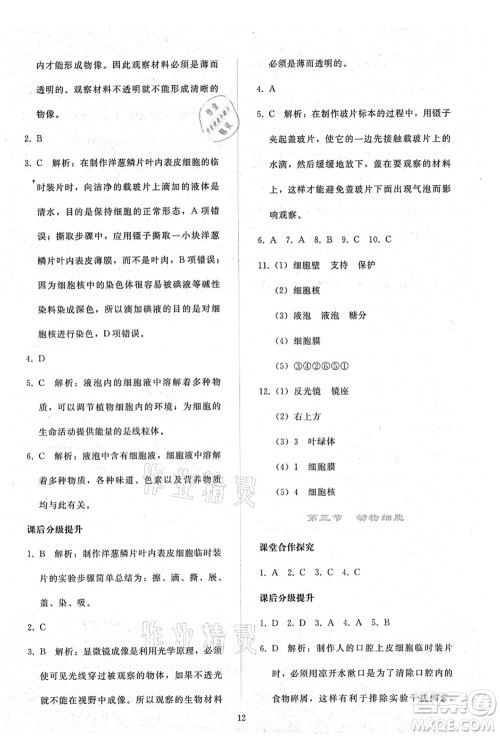 内才能形成物像。因此观察材料必须是薄而
透明的。观察材料不透明就不能形成清晰的
物像。
2. B
3. C 解析：在制作洋葱鳞片叶内表皮细胞的临
时装片时，向洁净的载玻片上滴加的液体是
清水，目的是保持细胞的正常形态，A 项错
误；撕取步骤中，用镊子撕取一小块洋葱
鳞片叶内表皮薄膜，而不是叶肉，B 项错误；
因为细胞核中的染色体容易被碘液等碱性
染料染成深色，所以滴加碘液的目的是染
色，D 项错误。
4. D
5. C 解析：液泡内的细胞液中溶解着多种物
质，可以调节植物细胞的内环境；为细胞的
生命活动提供能量的是线粒体。
6. C 解析：液泡中有细胞液，细胞液中溶解
着多种物质，各种味道、色素以及营养物质
均是。
课后分级提升
1. B 解析：制作洋葱鳞片叶内表皮细胞临时装
片的实验步骤简单总结为：擦、滴、撕、展、
盖、染、吸。
2. C
3. B 解析：显微镜成像是利用光学原理，一
定要有光线穿过被观察的物体，如果不透光
就不能在视野中成像。所以观察的生物材料
必须是薄而透明的。
4. A
5. C 解析：在制作玻片标本的过程中，用镊子
夹起盖玻片，使它的一边先接触载玻片上的
水滴，然后缓缓地放下，盖在要观察的材料
上，这样才能避免盖玻片下面出现气泡而影
响观察。
6. A 7. D 8. A 9. D 10. C
11.（1）细胞壁 支持 保护
（2）细胞核
（3）液泡 液泡 糖分
（4）细胞膜
（5）③④②⑥⑤①
12.（1）反光镜 镜座
（2）右上方
（3）3 叶绿体
（4）细胞膜
（5）4 细胞核
第三节 动物细胞
课堂合作探究
1. A 2. C 3. C 4. C
课后分级提升
1. D 2. D 解析：制作人的口腔上皮细胞临时装片
时，应用凉开水漱口的目的是清除口腔内的
食物碎屑，这样有利于排除实验干扰因素，
12
作业精灵
作业精灵